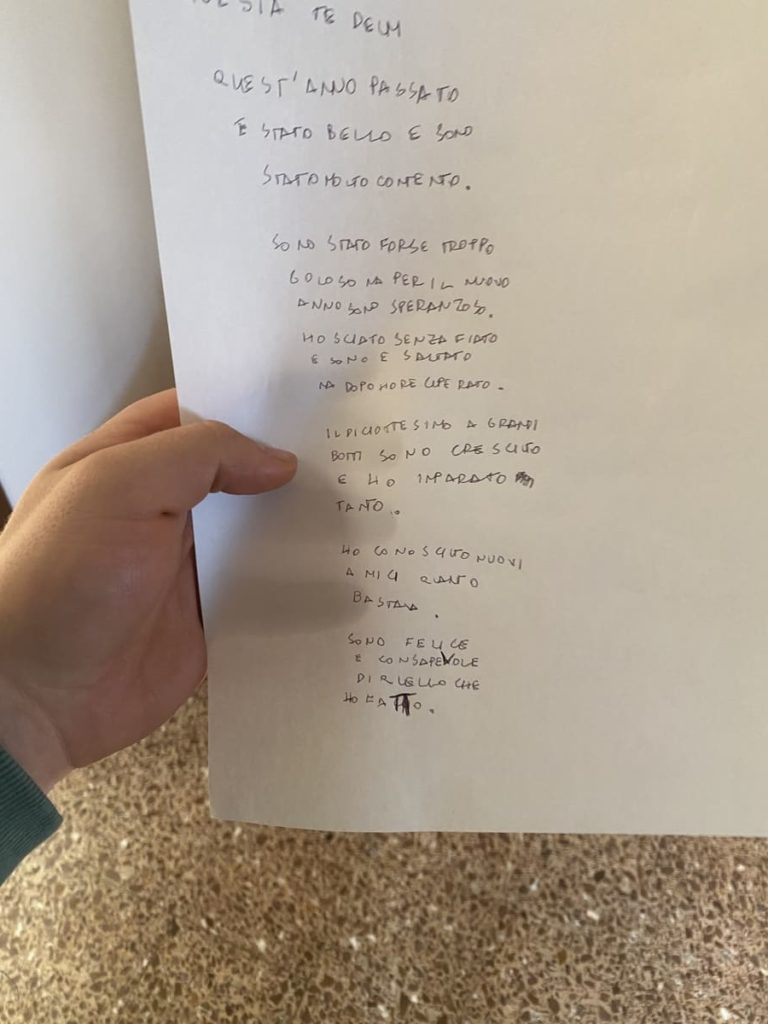 POESIA TE DEUM
QUEST'ANNO PASSATO
È STATO BELLO E SONO
STATO MOLTO CONTENTO.
SONO STATO FORSE TROPPO
GOLOSO MA PER IL NUOVO
ANNO SONO SPERANZOSO.
HO SCIATO SENZA FIATO
E SONO E SALTATO
MA DOPO HO RECUPERATO.
IL DICIOTTESIMO A GRANDI
BOTTI SONO CRESCIUTO
E HO IMPARATO
TANTO.
HO CONOSCIUTO NUOVI
AMICI QUANTO
BASTAVA.
SONO FELICE
E CONSAPEVOLE
DI QUELLO CHE
HO FATTO.